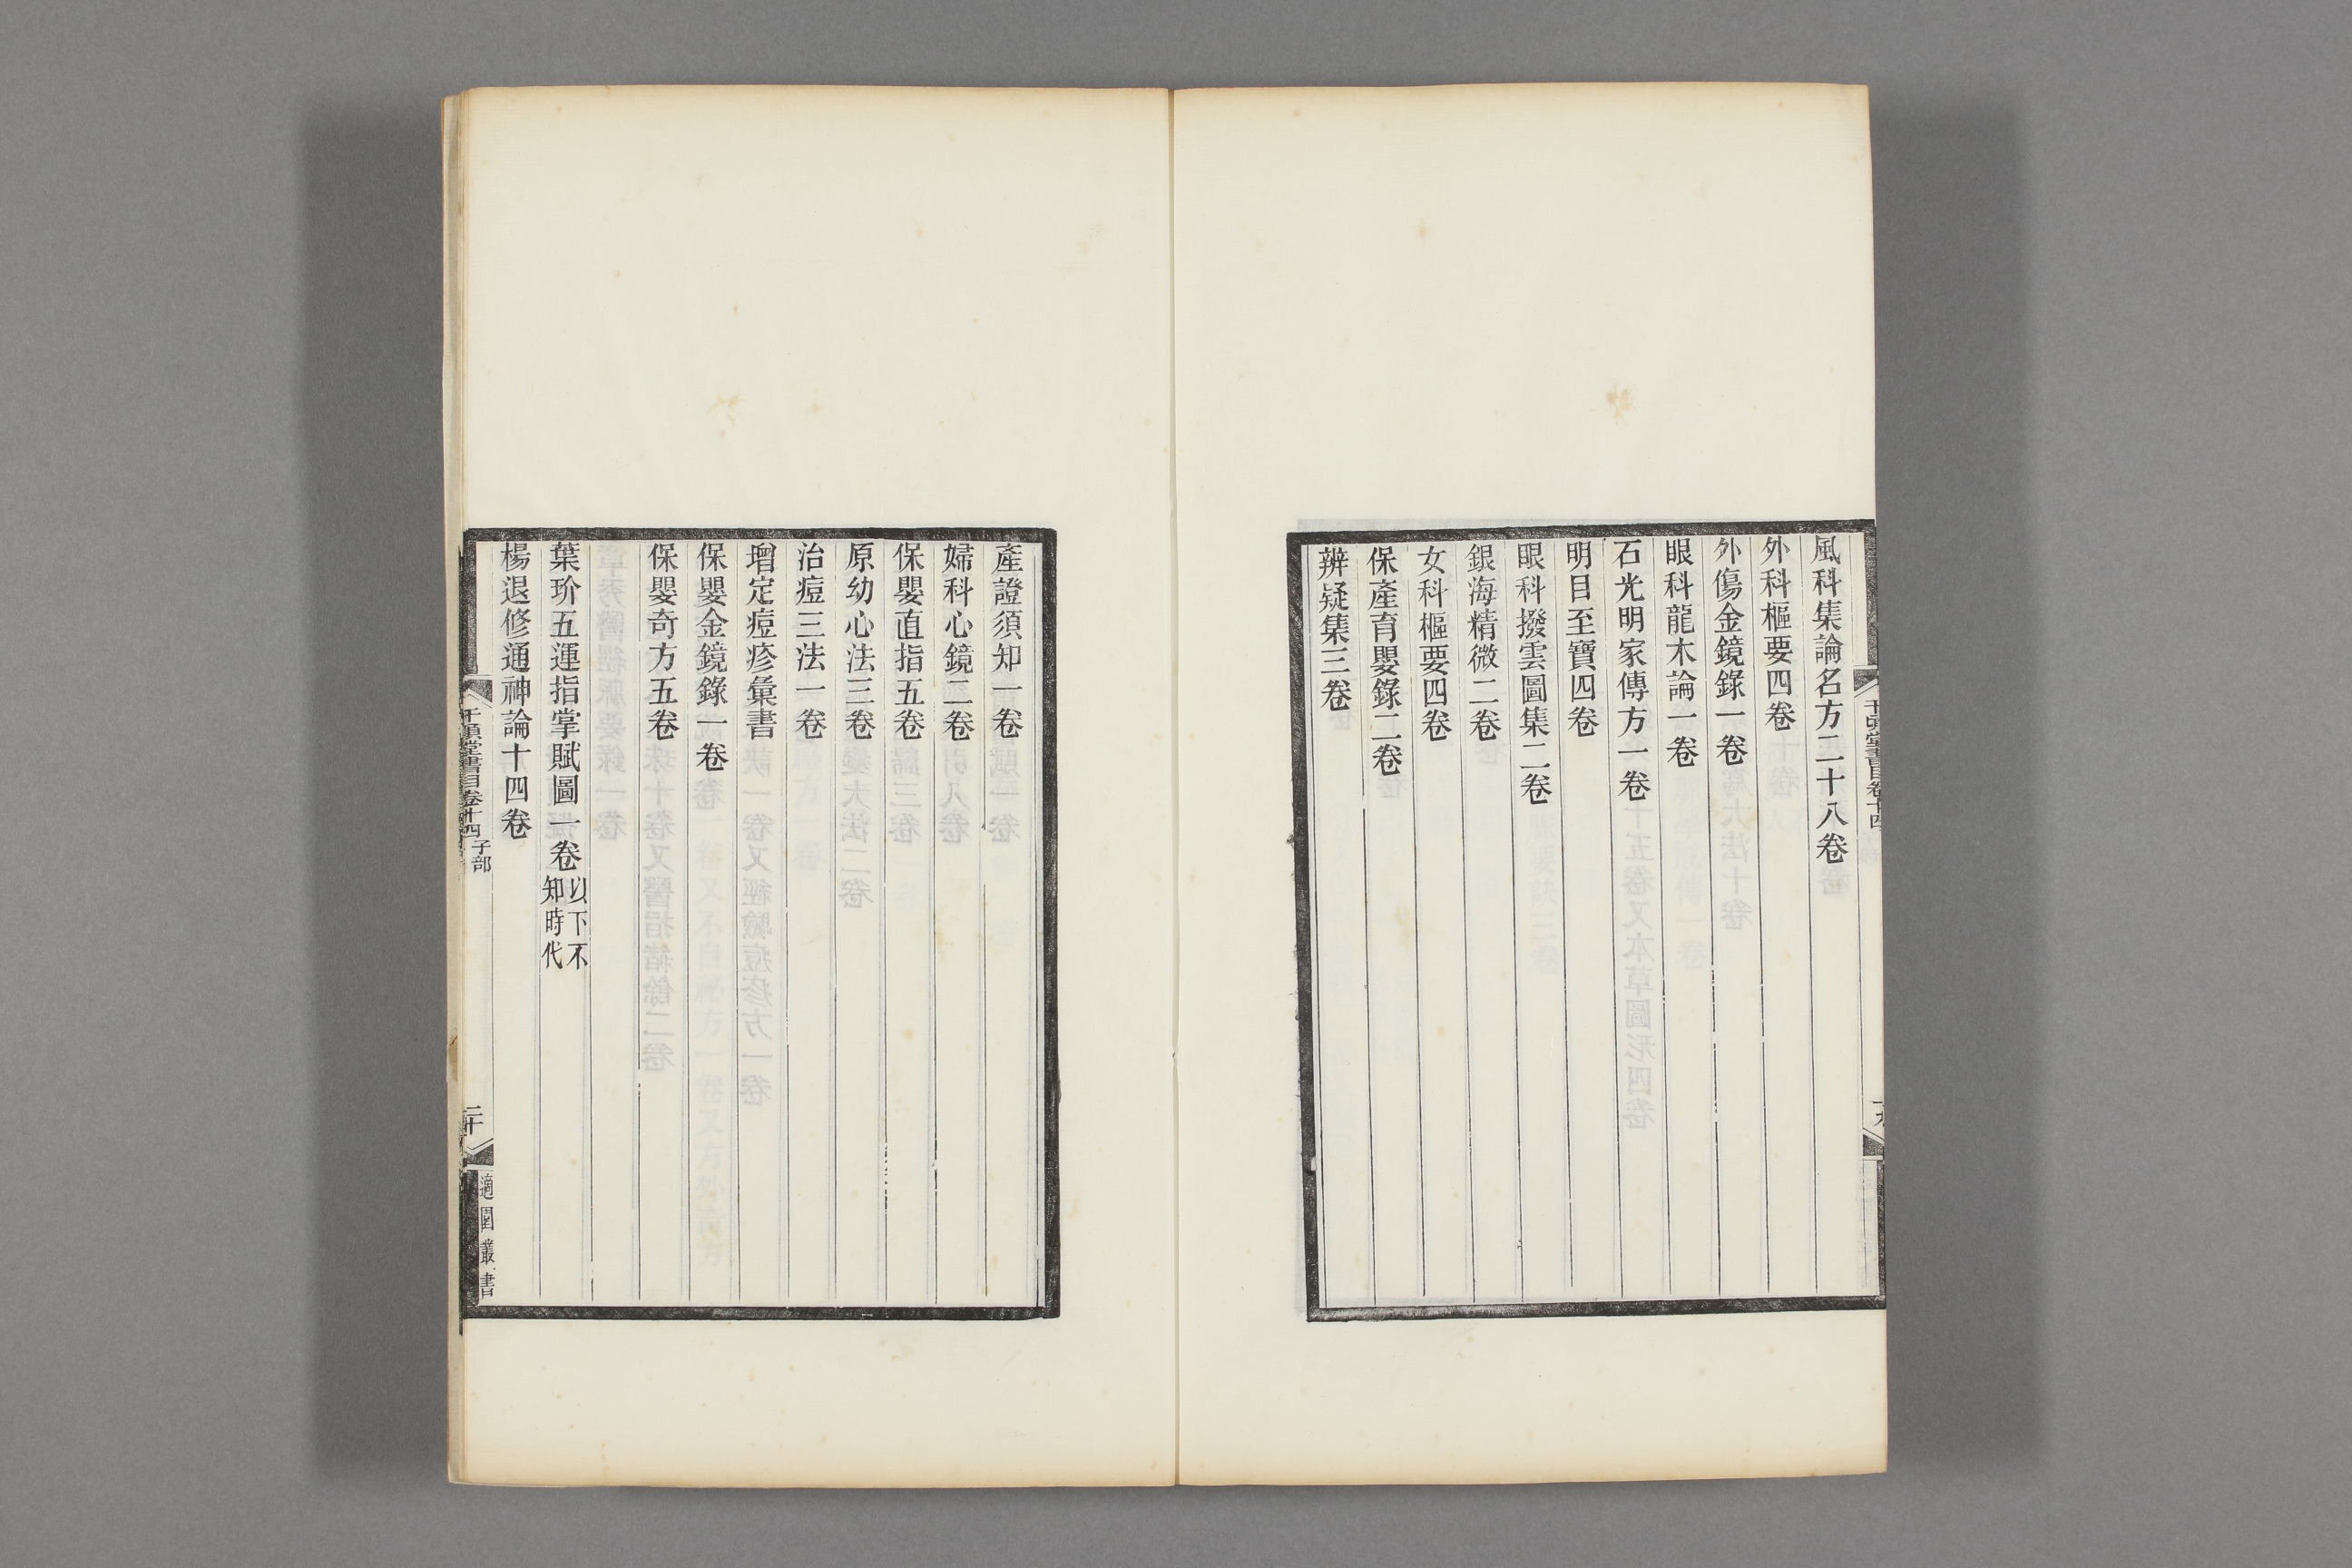 風科集論名方二十八卷
外科樞要四卷
外傷金鏡錄一卷
眼科龍木論一卷
石光明家傳方一卷
明目至寶四卷
眼科撥雲圖集二卷
銀海精微二卷
女科樞要四卷
保產育嬰錄二卷
辨疑集三卷
產證須知一卷
婦科心鏡二卷
保嬰直指五卷
原幼心法三卷
治痘三法一卷
增定痘疹彙書
保嬰金鏡錄一卷
保嬰奇方五卷
葉玠五運指掌賦圖一卷以下不知時代
楊退修通神論十四卷
千頃堂書目卷十四 子部
二十
適園叢書